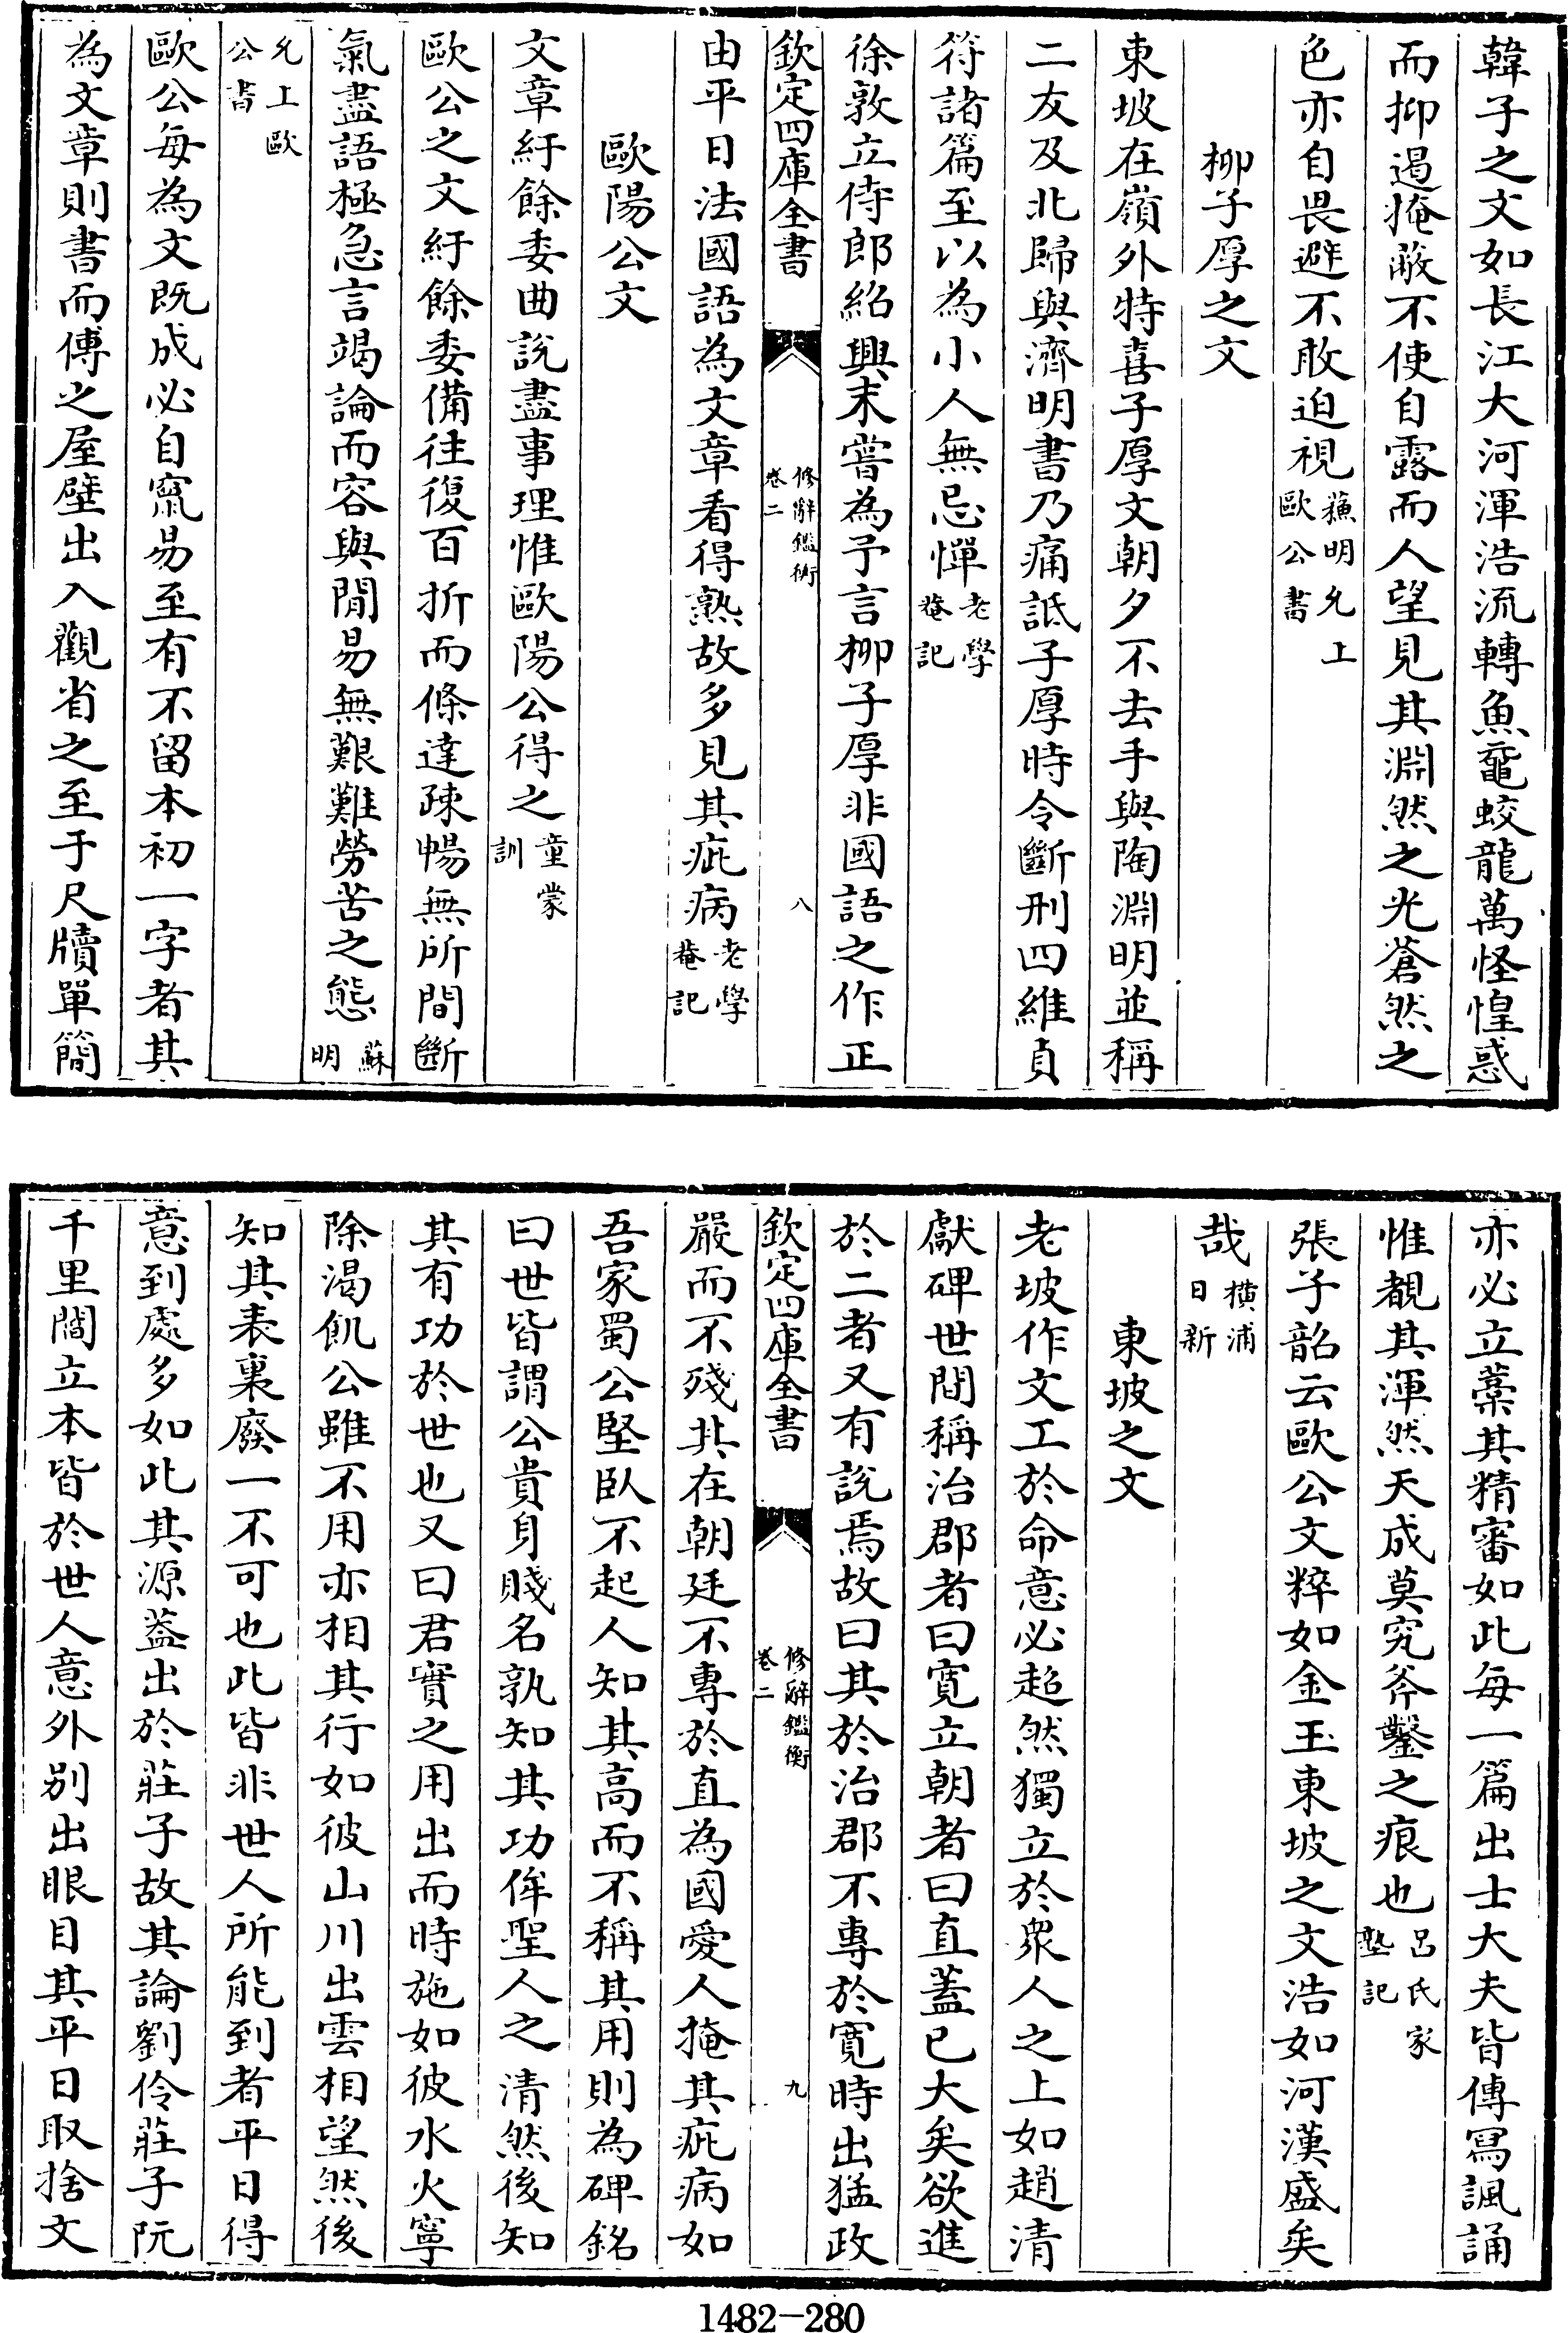 韓子之文如長江大河渾浩流轉魚黿蛟龍萬怪惶惑
而抑遏掩蔽不使自露而人望見其淵然之光蒼然之
色亦自畏避不敢迫視蘓明允上歐公書
柳子厚之文
東坡在嶺外特喜子厚文朝夕不去手與陶淵明並稱
二友及北歸與濟明書乃痛詆子厚時令斷刑四維貞
符諸篇至以為小人無忌憚老學菴記
徐敦立侍郎紹興末嘗為予言柳子厚非國語之作正
欽定四庫全書 修辭鑑衡 卷二 八
由平日法國語為文章看得熟故多見其疵病老學菴記
歐陽公文
文章紆餘委曲說盡事理惟歐陽公得之童蒙訓
歐公之文紆餘委備往復百折而條達疎暢無所間斷
氣盡語極急言竭論而容與閒易無艱難勞苦之態蘇明
允上歐公書
歐公每為文既成必自竄易至有不留本初一字者其
為文章則書而傅之屋壁出入觀省之至于尺牘單簡
亦必立藁其精審如此每一篇出士大夫皆傳寫諷誦
惟覩其渾然天成莫究斧鑿之痕也呂氏家塾記
張子韶云歐公文粹如金玉東坡之文浩如河漢盛矣
哉橫浦日新
東坡之文
老坡作文工於命意必超然獨立於衆人之上如趙清
獻碑世間稱治郡者曰寬立朝者曰直蓋已大矣欲進
於二者又有說焉故曰其於治郡不專於寬時出猛政
欽定四庫全書 修辭鑑衡 卷二 九
嚴而不殘其在朝廷不專於直為國愛人掩其疵病如
吾家蜀公堅臥不起人知其高而不稱其用則為碑銘
曰世皆謂公貴身賤名孰知其功侔聖人之清然後知
其有功於世也又曰君實之用出而時施如彼水火寧
除渴飢公雖不用亦相其行如彼山川出雲相望然後
知其表裏廢一不可也此皆非世人所能到者平日得
意到處多如此其源葢出於莊子故其論劉伶莊子阮
千里閻立本皆於世人意外別出眼目其平日取捨文
1482-280